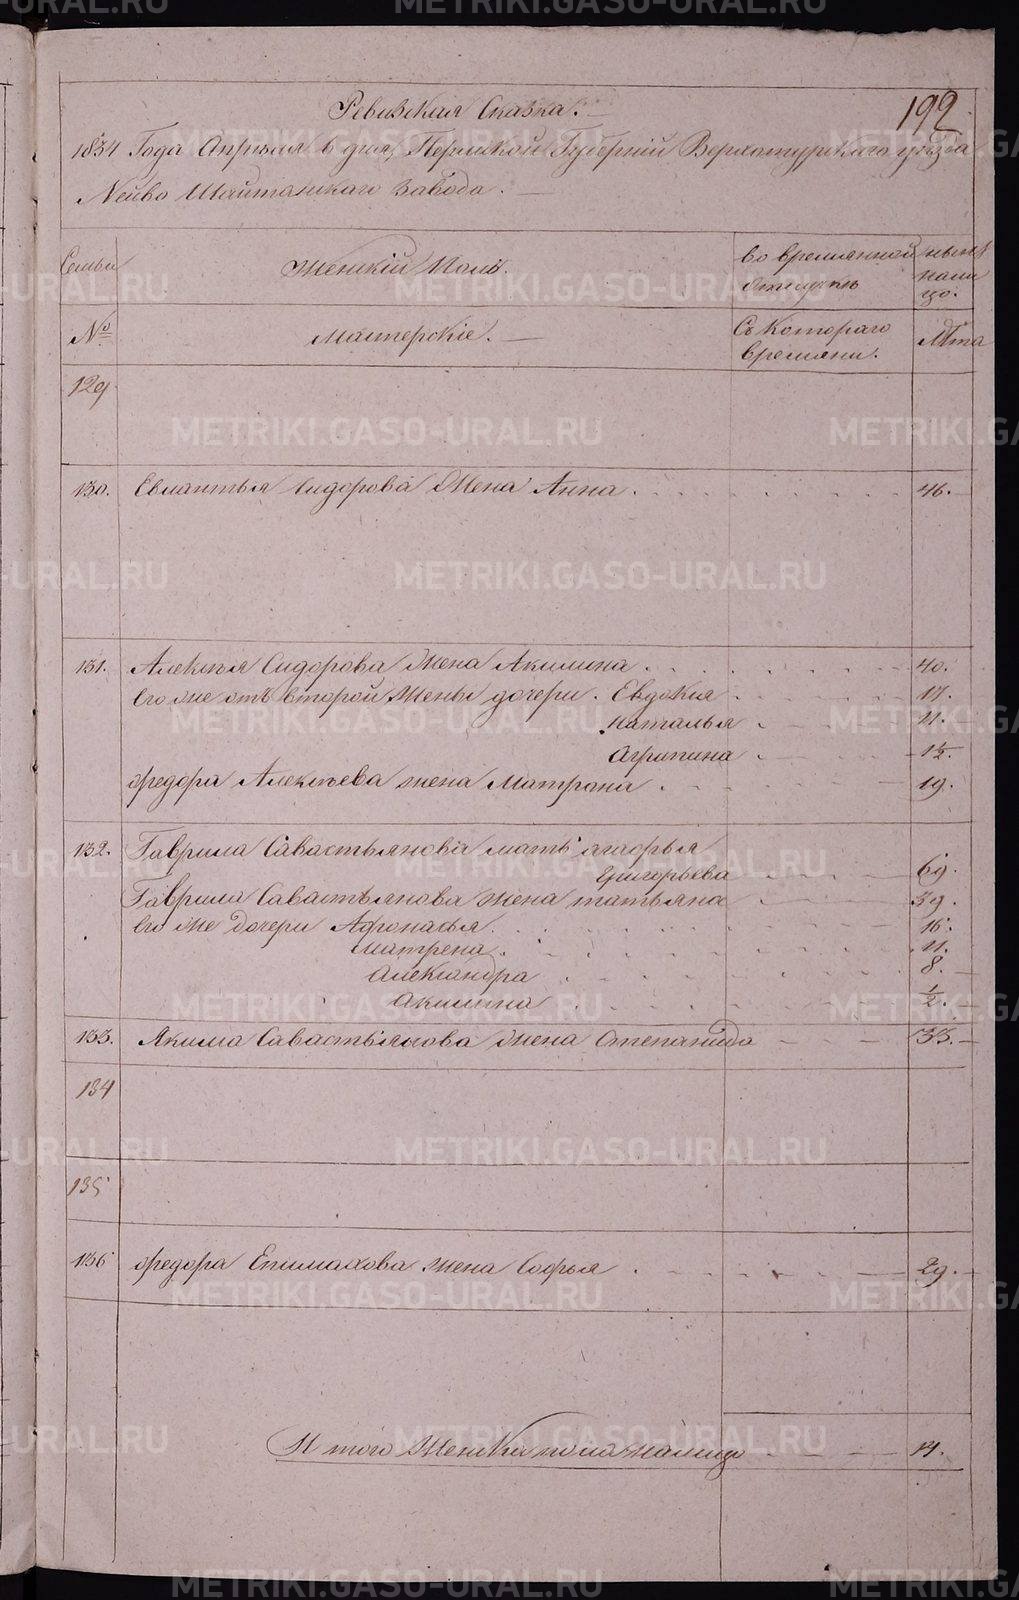 192
Ревизская Сказка.
1834 Года Апреля 6 дня, Пермской Губернии Верхотурского уезда
Нейво Шайтанского завода.
Семьи
Женский Полъ.
во временной отлучкѣ
нынѣ на лицо.
№
Мастерские.
Съ котораго времяни.
Лѣта
129
130. Евлантья Сидорова Жена Анна 46.
131. Алексѣя Сидорова Жена Акилина 40.
Его же отъ второй Жены дочери. Евдокия 17.
Наталья 11.
Агрипина 1½.
Федора Алексѣева жена Матрона 19.
132. Гаврила Савастьянова мать
Григорьева 69.
Гаврила Савастьянова жена татьяна 39.
Его же Дочери Афонасья 16.
Матрена 11.
Александра 8.
Акилина ½.
133. Якима Савастьянова жена Степанида 33.
134
135
136 Федора Епимахова жена Софья 29.
И того Женска пола налицо 14.
METRIKI.GASO-URAL.RU